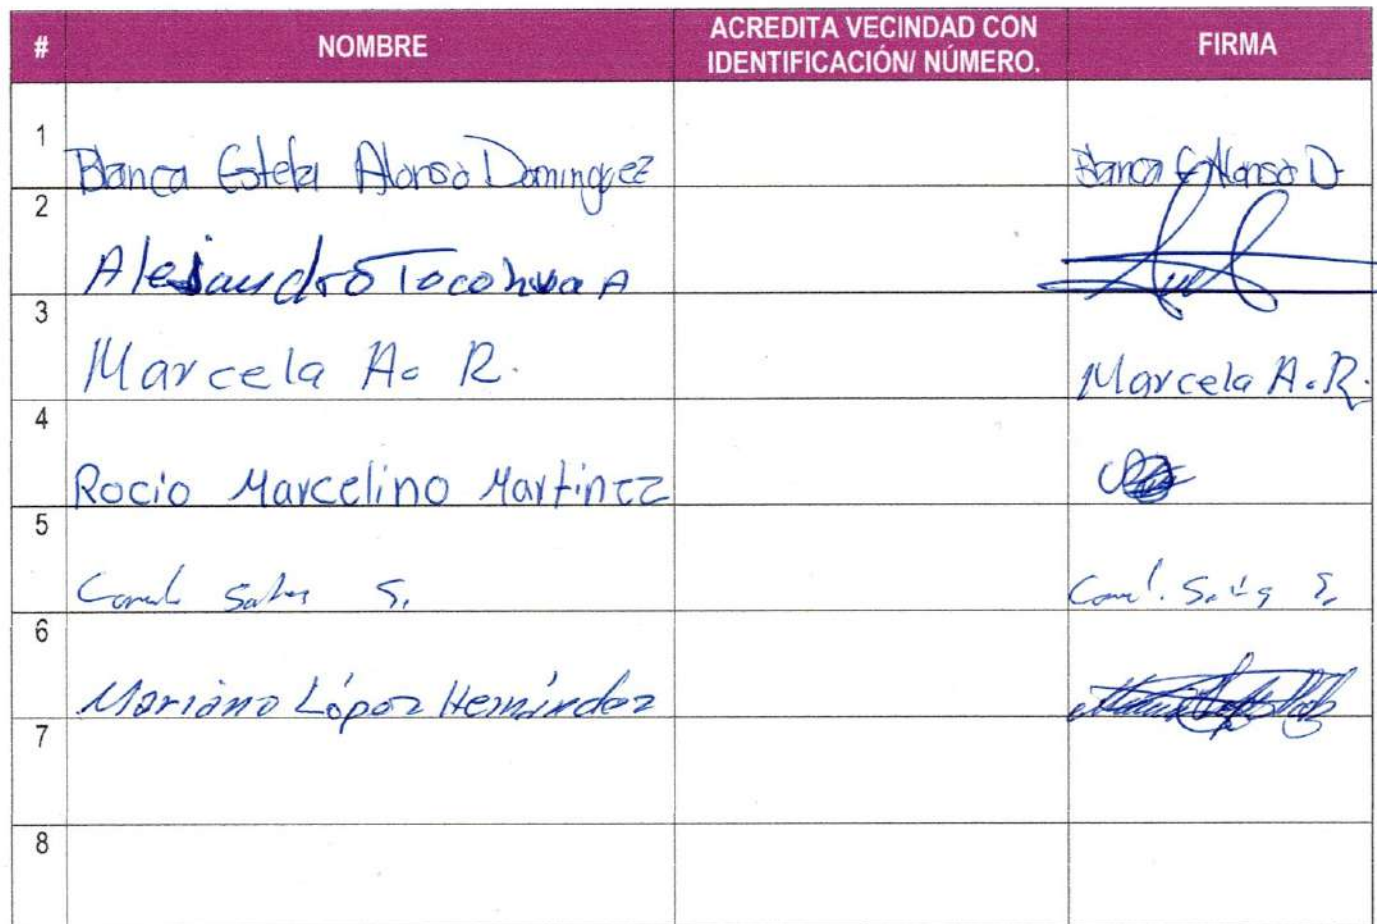 # NOMBRE ACREDITA VECINDAD CON IDENTIFICACIÓN/ NÚMERO. FIRMA
1 Blanca Estela Alonso Dominguez Blanca E Alonso D.
2 Alejandro Tocohua A
3 Marcela A. R. Marcela A. R.
4 Rocio Marcelino Martinez
5 S.
6 Mariano López Hernández
7
8